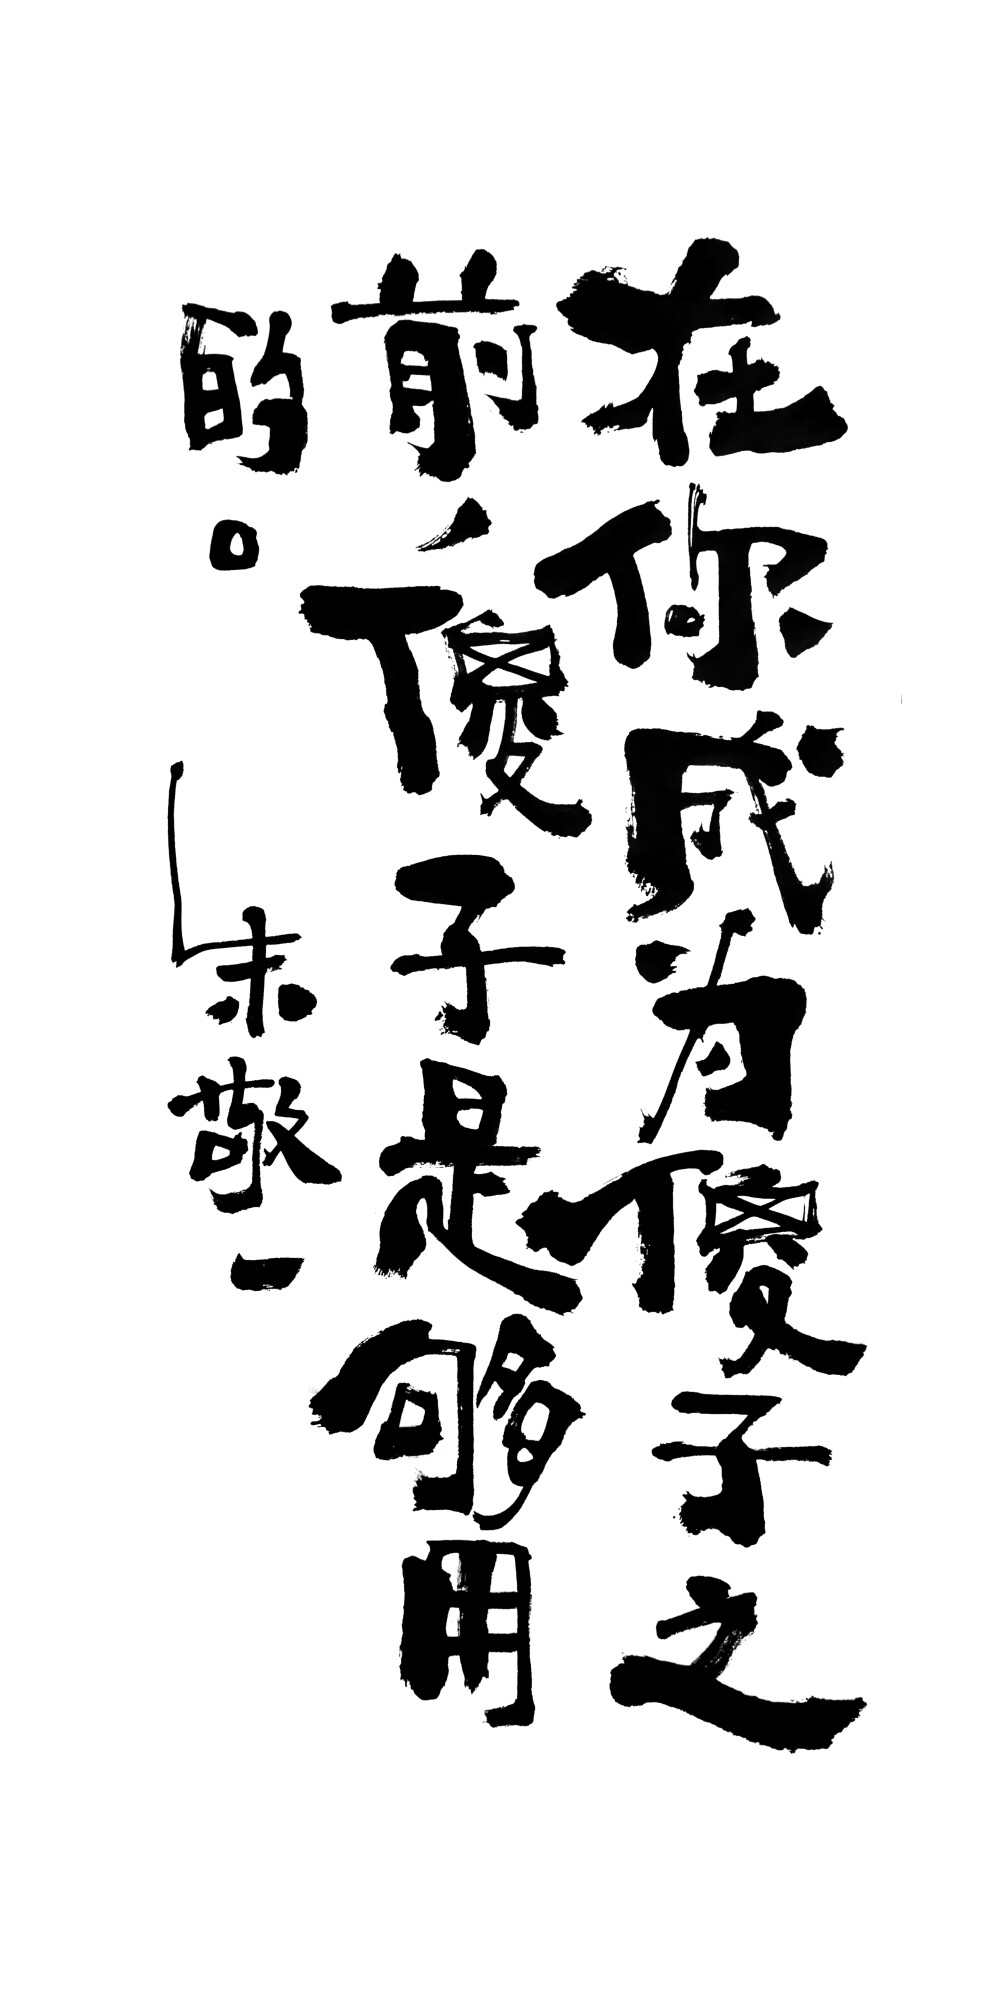 在你成为傻子之
前，傻子是够用
的。
朱敬一